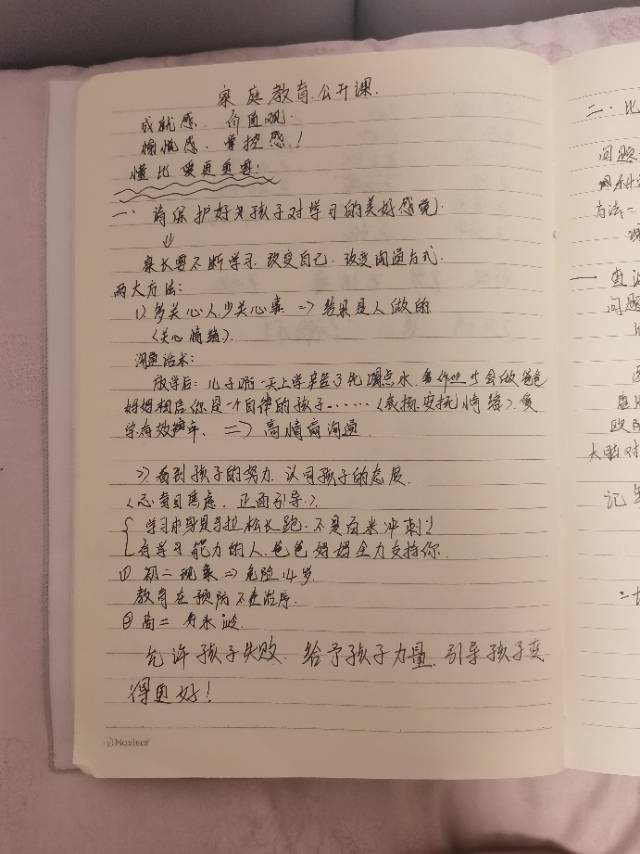 家庭教育公开课.
成就感. 价值观.
愉悦感. 掌控感!
懂比爱更重要!
一. 请保护好好孩子对学习的美好感觉!
家长要不断学习. 改变自己. 改变沟通方式.
两大方法:
1) 多关心人少关心事 => 结果是人做的
(关心情绪).
沟通话术:
放学后: 儿子 一天上学辛苦了 喝点水, 爸爸
妈妈相信你是一个自律的孩子…… (表扬 安抚情绪).
=> 高情商沟通.
2) 看到孩子的努力. 认同孩子的态度.
(忌盲目焦虑. 正面引导).
学习本身是马拉松长跑. 不是百米冲刺!
有学习能力的人, 爸爸妈妈全力支持你.
① 初二现象 => 危险14岁.
教育在预防不在治疗.
② 高二
允许孩子失败. 给予孩子力量. 引导孩子变
得更好!
二. 比
问题
方法一
一
问题
记